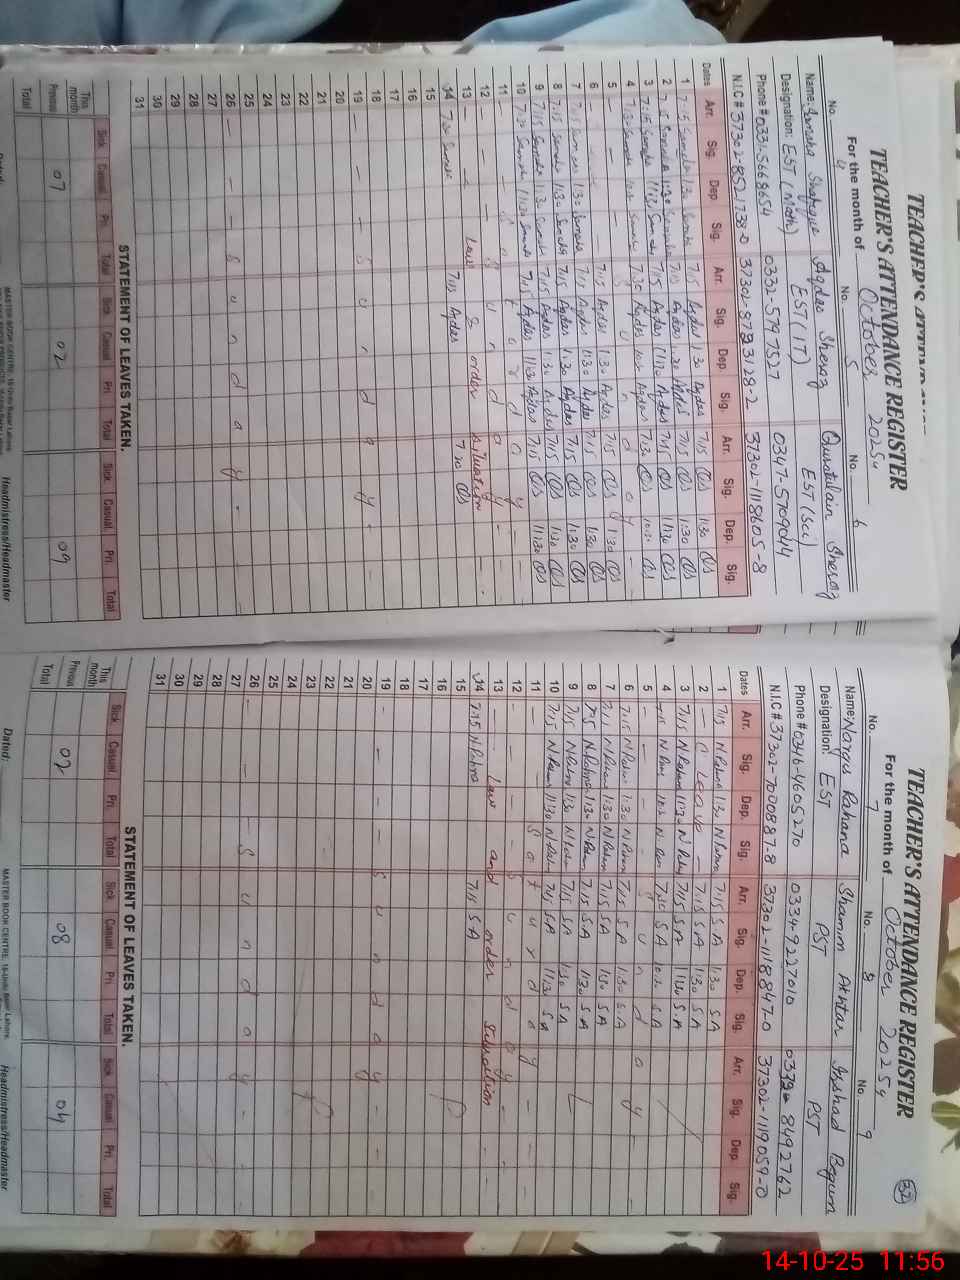 TEACHER'S ATTENDANCE REGISTER
For the month of October 2025
No. 4 No. 5 No. 6
Name: Shafique Aqdas Sheraz Quratulain Sheraz
Designation: EST (Math) EST (IT) EST (Sci)
Phone # 0331-5668654 0332-5797527 0347-5709044
N.I.C # 37302-8521738-0 37302-8723128-2 37302-1118605-8
Dates Arr. Sig. Dep Sig. Arr. Sig. Dep. Sig. Arr. Sig. Dep. Sig.
1 7:15 1:30 7:15 Aqdas 1:30 Aqdas 7:15 1:30
2 7:15 1:30 7:15 Aqdas 1:30 Aqdas 7:15 1:30
3 7:15 11:30 7:15 Aqdas 11:30 Aqdas 7:15 11:30
4 7:30 7:30 Aqdas Aqdas 7:30
5 - - - S u n d a y -
6 7:15 Aqdas 1:30 Aqdas 7:15 1:30
7 7:15 1:30 7:15 Aqdas 1:30 Aqdas 7:15 1:30
8 7:15 1:30 7:15 Aqdas 1:30 Aqdas 7:15 1:30
9 7:15 1:30 7:15 Aqdas 1:30 Aqdas 7:15 1:30
10 7:20 11:30 7:15 Aqdas 11:30 Aqdas 7:15 11:30
11 - - S a t u r d a y - -
12 - - - S u n d a y - -
13 - - - Law & order situation - -
14 7:30 7:15 Aqdas 7:20
15
16
17
18
19 - - - S u n d a y - -
20
21
22
23
24
25
26 - - - S u n d a y -
27
28
29
30
31
STATEMENT OF LEAVES TAKEN.
Sick Casual Pri. Total Sick Casual Pri Total Sick Casual Pri. Total
This month
Previous 07 02 09
Total
MASTER BOOK CENTRE, 16-Urdu Bazar Lahore.
Headmistress/Headmaster
TEACHER'S ATTENDANCE REGISTER
32
For the month of October 2025
No. 7 No. 8 No. 9
Name: Nargus Rahana Shamim Akhtar Irshad Begum
Designation: EST PST PST
Phone # 0346-4605270 0334-9227010 0332-8492762
N.I.C # 37302-7000887-8 37302-1118847-0 37302-1119059-0
Dates Arr. Sig. Dep. Sig. Arr. Sig. Dep. Sig. Arr. Sig. Dep Sig.
1 7:15 1:30 7:15 S.A 1:30 S A
2 - C Leave - 7:15 S.A 1:30 S A
3 7:15 11:30 7:15 S.A 11:30 S A
4 7:15 7:20 S A S A
5 - - - S u n d a y -
6 7:15 1:30 7:15 S.A 1:30 S.A
7 7:15 1:30 7:15 S.A 1:30 S A
8 7:15 1:30 7:15 S.A 1:30 S A
9 7:15 1:30 7:15 S.A 1:30 S A
10 7:15 11:30 7:15 S.A 11:30 S A
11 - - S a t u r d a y - -
12 - - - S u n d a y - -
13 - - Law and order situation - -
14 7:15 7:15 S.A
15
16
17
18
19 - - - S u n d a y - -
20
21
22
23
24
25
26 - - - S u n d a y - -
27
28
29
30
31
STATEMENT OF LEAVES TAKEN.
Sick Casual Pri. Total Sick Casual Pri. Total Sick Casual Pri. Total
This month
Previous 02 08 04
Total
Dated:
MASTER BOOK CENTRE, 16-Urdu Bazar Lahore.
Headmistress/Headmaster
14-10-25 11:56